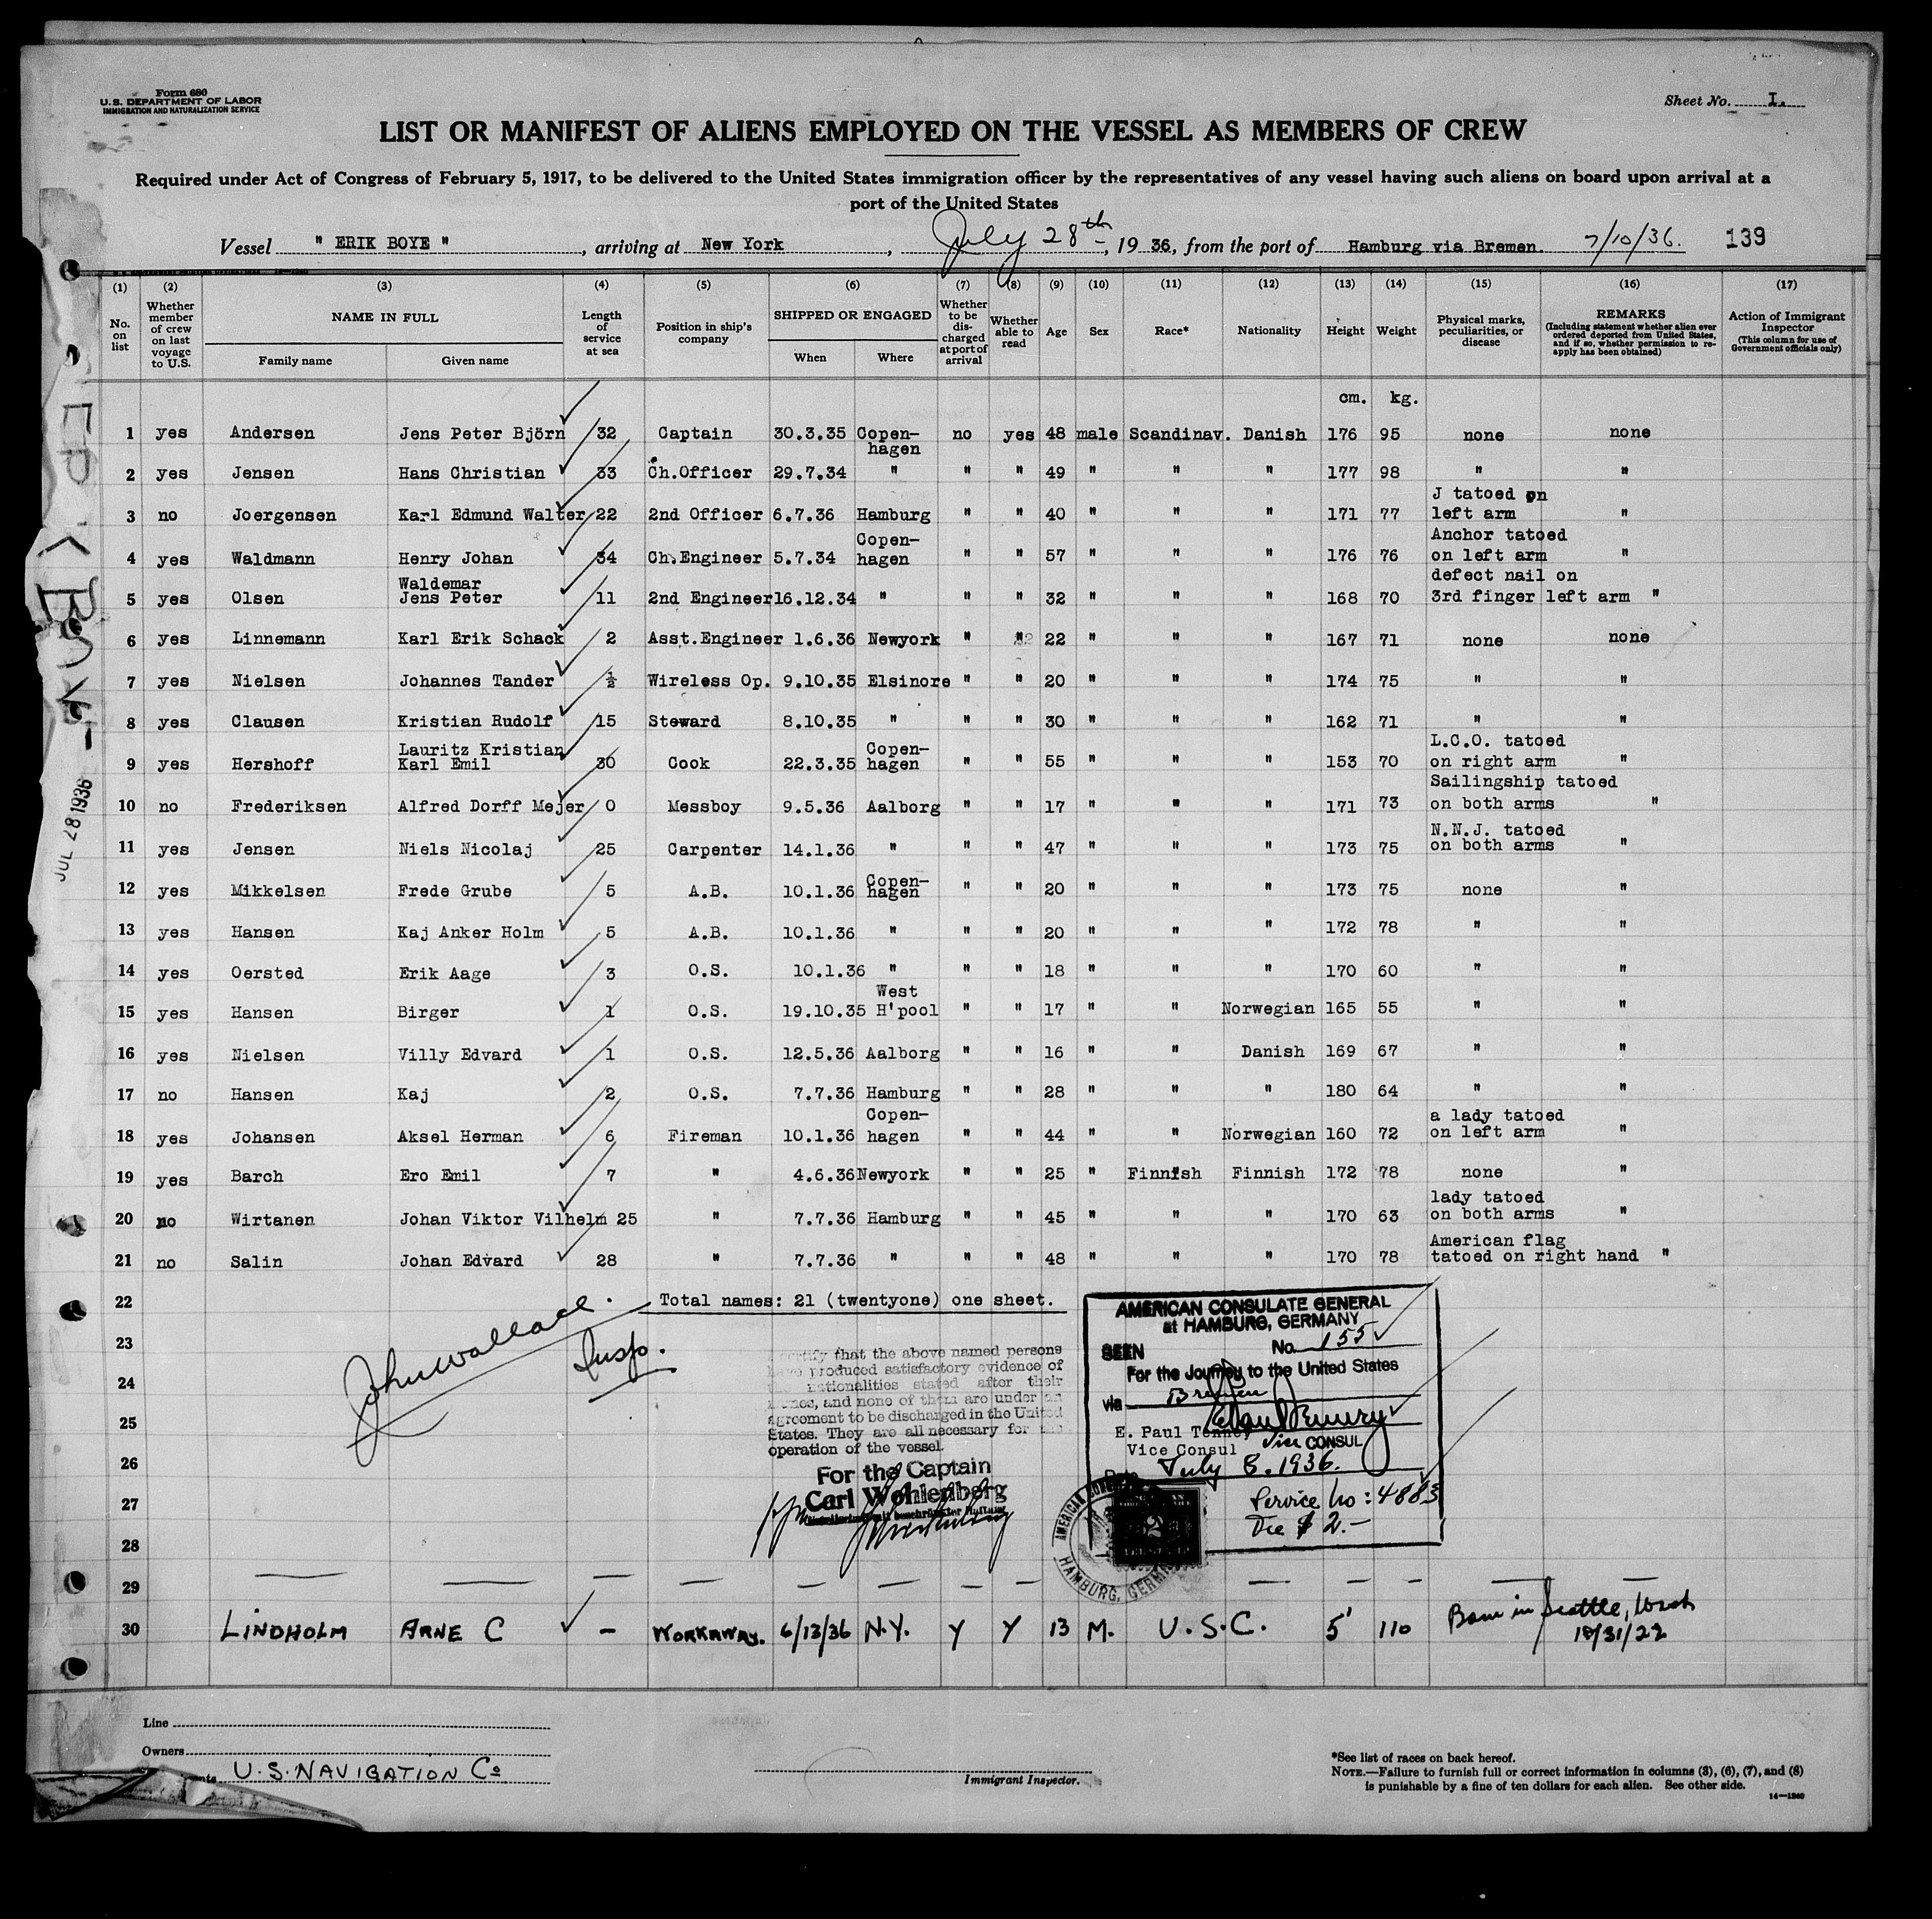 Form 680
U.S. DEPARTMENT OF LABOR
IMMIGRATION AND NATURALIZATION SERVICE
Sheet No. I.
LIST OR MANIFEST OF ALIENS EMPLOYED ON THE VESSEL AS MEMBERS OF CREW
Required under Act of Congress of February 5, 1917, to be delivered to the United States immigration officer by the representatives of any vessel having such aliens on board upon arrival at a
port of the United States
Vessel " ERIK BOYE ", arriving at New York, July 28th, 1936, from the port of Hamburg via Bremen. 7/10/36. 139
(1) No. on list
(2) Whether member of crew on last voyage to U.S.
(3) NAME IN FULL Family name Given name
(4) Length of service at sea
(5) Position in ship's company
(6) SHIPPED OR ENGAGED When Where
(7) Whether to be discharged at port of arrival
(8) Whether able to read
(9) Age
(10) Sex
(11) Race*
(12) Nationality
(13) Height
(14) Weight
(15) Physical marks, peculiarities, or disease
(16) REMARKS (Including statement whether alien ever ordered deported from United States, and if so, whether permission to re-apply has been obtained)
(17) Action of Immigrant Inspector (This column for use of Government officials only)
cm. kg.
1 yes Andersen Jens Peter Björn 32 Captain 30.3.35 Copen-hagen no yes 48 male Scandinav. Danish 176 95 none none
2 yes Jensen Hans Christian 33 Ch.Officer 29.7.34 " " " 49 " " " 177 98 " "
3 no Joergensen Karl Edmund Walter 22 2nd Officer 6.7.36 Hamburg " " 40 " " " 171 77 J tatoed on left arm "
4 yes Waldmann Henry Johan 34 Ch.Engineer 5.7.34 Copen-hagen " " 57 " " " 176 76 Anchor tatoed on left arm "
5 yes Olsen Waldemar Jens Peter 11 2nd Engineer 16.12.34 " " " 32 " " " 168 70 defect nail on 3rd finger left arm "
6 yes Linnemann Karl Erik Schack 2 Asst.Engineer 1.6.36 Newyork " " 22 " " " 167 71 none none
7 yes Nielsen Johannes Tander ½ Wireless Op. 9.10.35 Elsinore " " 20 " " " 174 75 " "
8 yes Clausen Kristian Rudolf 15 Steward 8.10.35 " " " 30 " " " 162 71 " "
9 yes Hershoff Lauritz Kristian Karl Emil 30 Cook 22.3.35 Copen-hagen " " 55 " " " 153 70 L.C.O. tatoed on right arm "
10 no Frederiksen Alfred Dorff Mejer 0 Messboy 9.5.36 Aalborg " " 17 " " " 171 73 Sailingship tatoed on both arms "
11 yes Jensen Niels Nicolaj 25 Carpenter 14.1.36 " " " 47 " " " 173 75 N.N.J. tatoed on both arms "
12 yes Mikkelsen Frede Grube 5 A.B. 10.1.36 Copen-hagen " " 20 " " " 173 75 none "
13 yes Hansen Kaj Anker Holm 5 A.B. 10.1.36 " " " 20 " " " 172 78 " "
14 yes Oersted Erik Aage 3 O.S. 10.1.36 " " " 18 " " " 170 60 " "
15 yes Hansen Birger 1 O.S. 19.10.35 West H'pool " " 17 " " Norwegian 165 55 " "
16 yes Nielsen Villy Edvard 1 O.S. 12.5.36 Aalborg " " 16 " " Danish 169 67 " "
17 no Hansen Kaj 2 O.S. 7.7.36 Hamburg " " 28 " " " 180 64 " "
18 yes Johansen Aksel Herman 6 Fireman 10.1.36 Copen-hagen " " 44 " " Norwegian 160 72 a lady tatoed on left arm "
19 yes Barch Ero Emil 7 " 4.6.36 Newyork " " 25 " Finnish Finnish 172 78 none "
20 no Wirtanen Johan Viktor Vilhelm 25 " 7.7.36 Hamburg " " 45 " " " 170 63 lady tatoed on both arms "
21 no Salin Johan Edvard 28 " 7.7.36 " " " 48 " " " 170 78 American flag tatoed on right hand "
22 Total names: 21 (twentyone) one sheet.
23
24
25
26
27
28
29
John Wallace. Insp.
that the above named persons
produced satisfactory evidence of
nationalities stated after their
and none of them are under an
agreement to be discharged in the United
States. They are all necessary for the
operation of the vessel.
For the Captain
Carl Wohlenberg
AMERICAN CONSULATE GENERAL
at HAMBURG, GERMANY
SEEN No. 155
For the Journey to the United States
via Bremen
E. Paul Tenney
Vice Consul Vice CONSUL
July 8. 1936.
Service No: 4883
Fee $ 2.-
AMERICAN
HAMBURG, GERMANY
2
30 LINDHOLM ARNE C - WORKAWAY. 6/13/36 N.Y. Y Y 13 M. U.S.C. 5' 110 Born in Seattle, Wash
JUL 28 1936
Line
Owners
U.S. NAVIGATION Co
Immigrant Inspector.
*See list of races on back hereof.
NOTE.—Failure to furnish full or correct information in columns (3), (6), (7), and (8)
is punishable by a fine of ten dollars for each alien. See other side.
14—1240